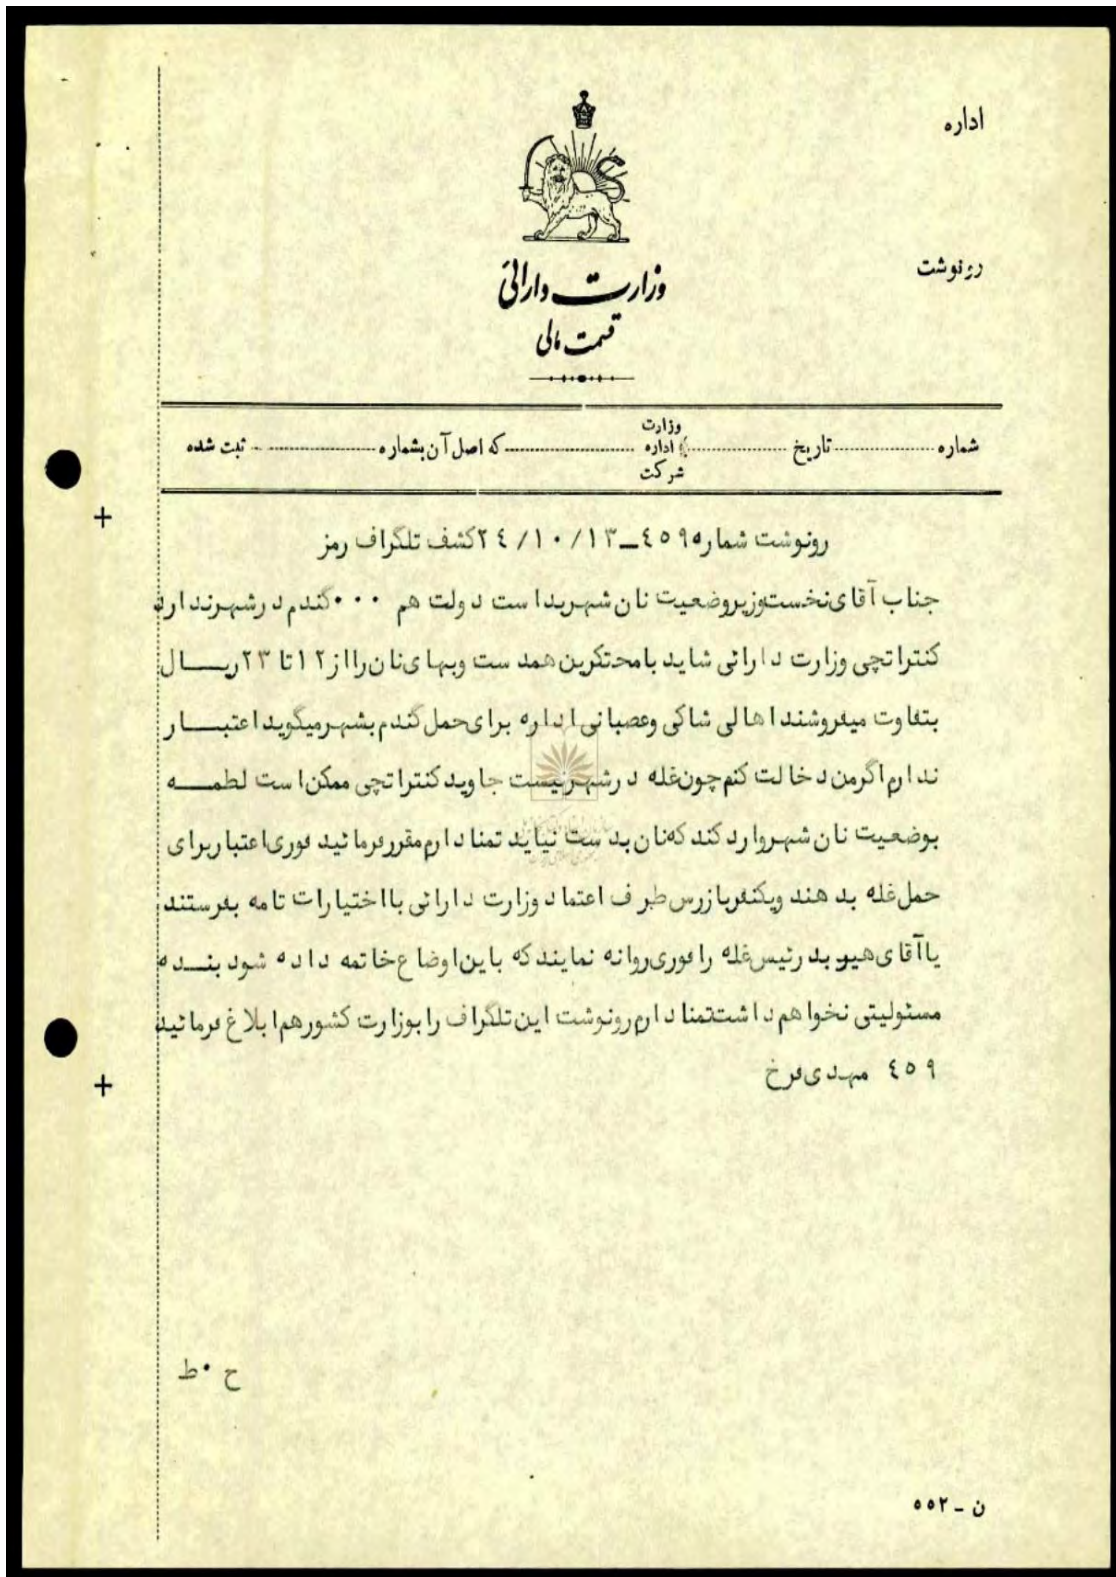 اداره
رونوشت
وزارت دارائی
قسمت مالی
شماره ........ تاریخ ........ وزارت اداره شرکت ........ که اصل آن بشماره ........ ثبت شده
رونوشت شماره ٤٥٩ـ ٢٤/١٠/١٣ کشف تلگراف رمز
جناب آقای نخست‌وزیر وضعیت نان شهر بد است دولت هم ٠٠٠ گندم در شهر ندارد
کنتراتچی وزارت دارائی شاید با محتکرین همدست وبهای نان را از ١٢ تا ٢٣ ریـــال
بتفاوت میفروشند اهالی شاکی وعصبانی اداره برای حمل گندم بشهر میگوید اعتبـــار
ندارم اگر من دخالت کنم چون غله در شهر نیست جاوید کنتراتچی ممکن است لطمـــه
بوضعیت نان شهر وارد کند که نان بدست نیاید تمنا دارم مقرر فرمائید فوری اعتبار برای
حمل غله بدهند ویکنفر بازرس طرف اعتماد وزارت دارائی با اختیارات تامه بفرستند
یا آقای هیوبد رئیس غله را فوری روانه نمایند که باین اوضاع خاتمه داده شود بنـــده
مسئولیتی نخواهم داشت تمنا دارم رونوشت این تلگراف را بوزارت کشور هم ابلاغ فرمائید
٤٥٩ مهدی فرخ
ح ٠ ط
ن ـ ٥٥٢